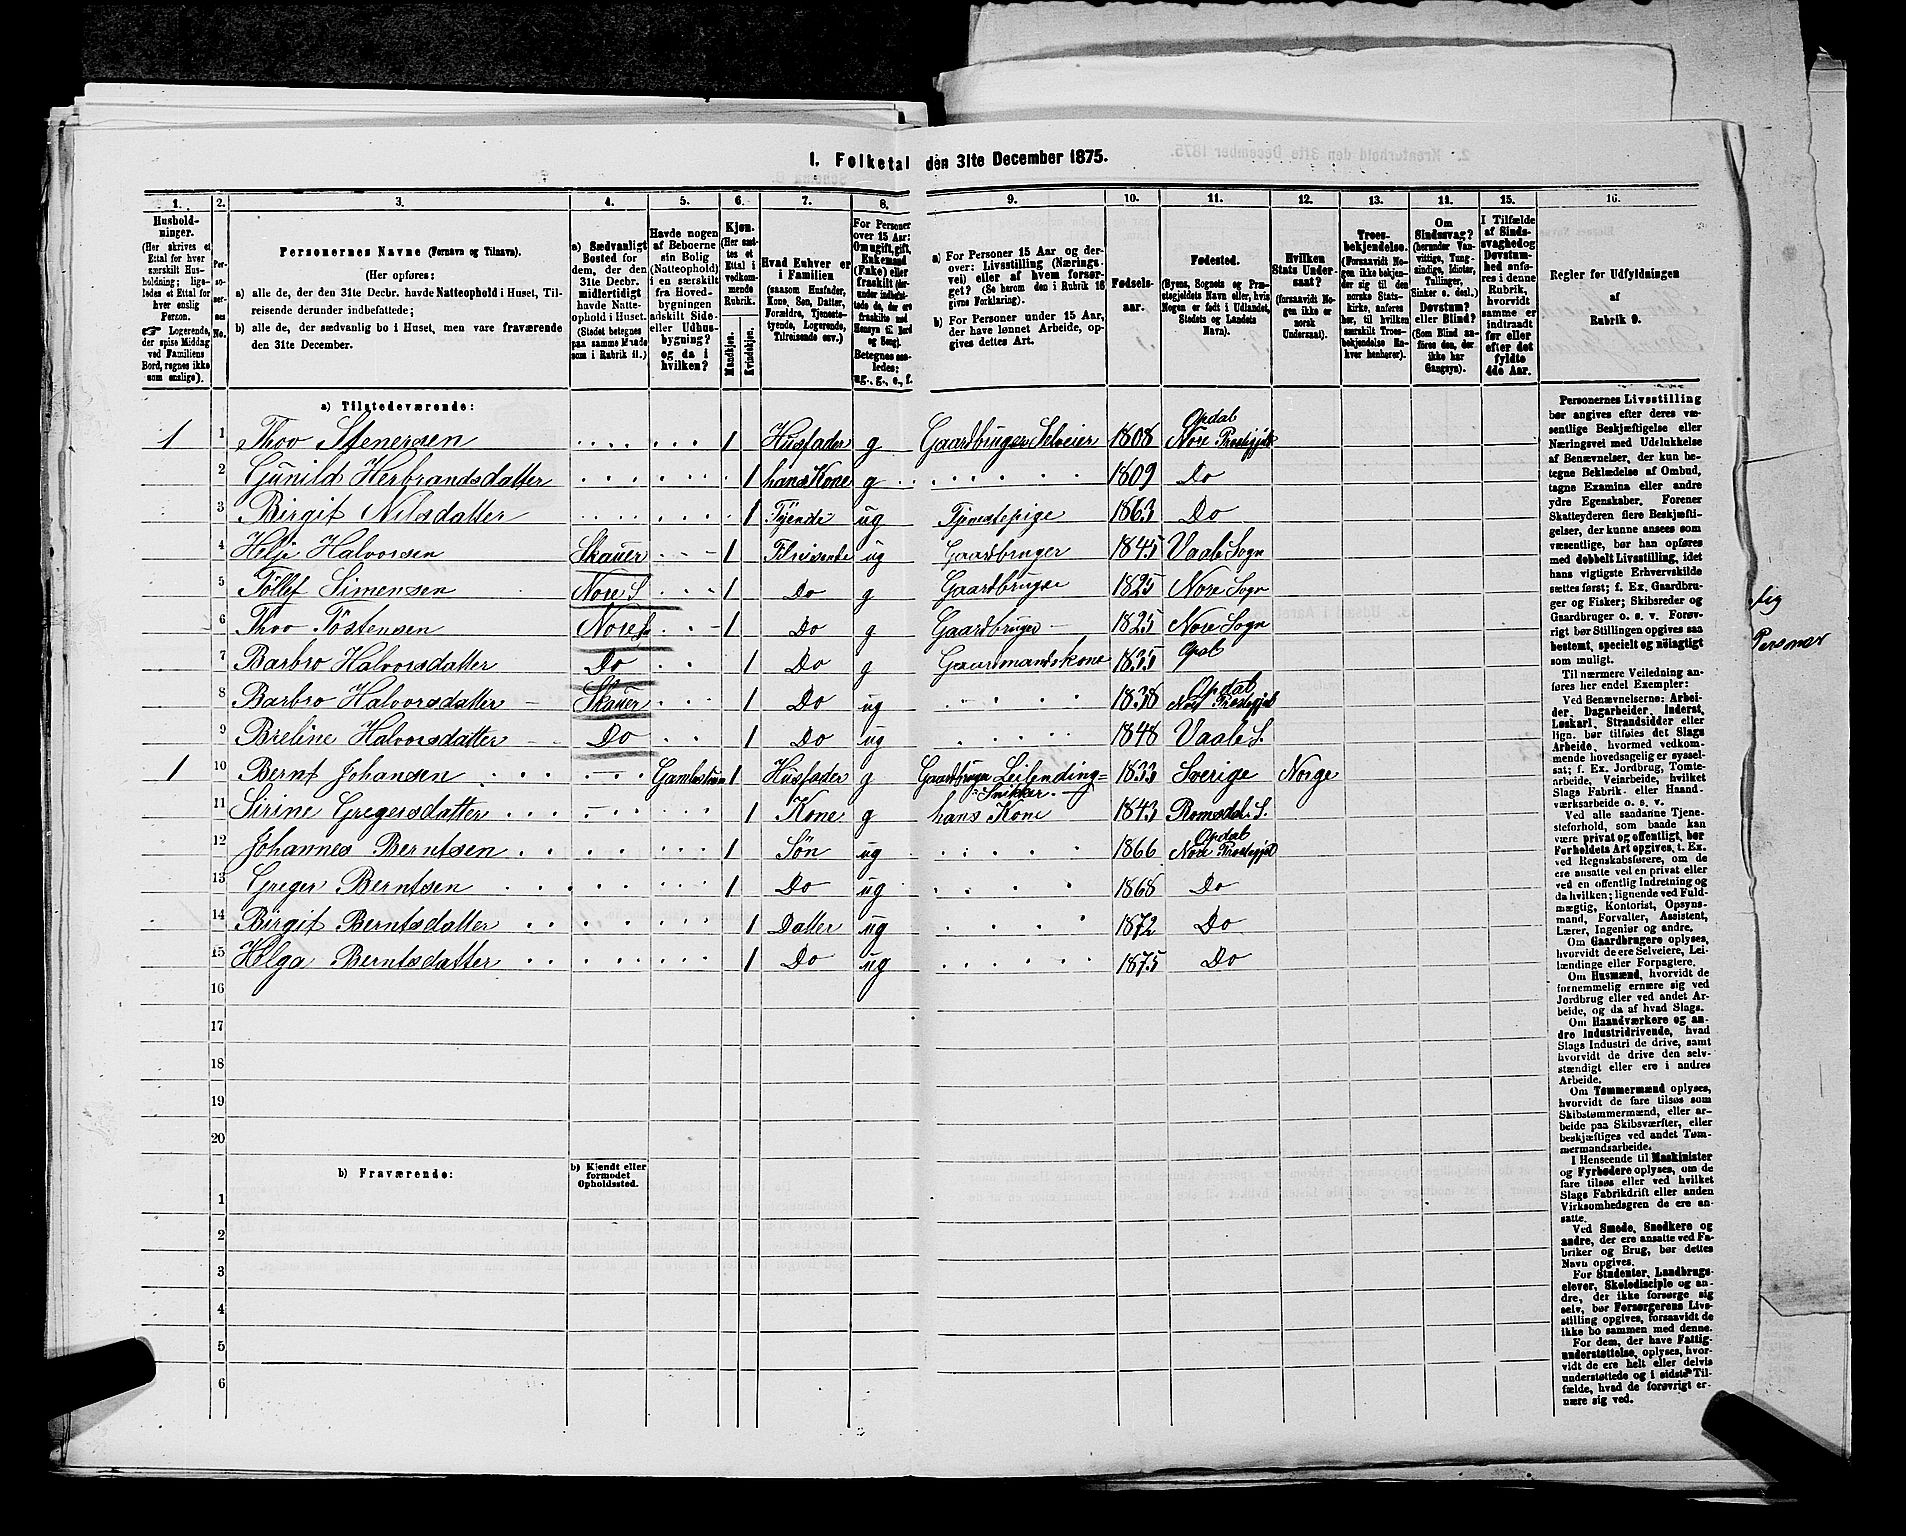 1. Folketal den 31te December 1875.
1. 2. 3. 4. 5. 6. 7. 8. 9. 10. 11. 12. 13. 14. 15. 16.
Hushold-
ninger.
(Her skrives et
Ettal for hver
særskilt Hus-
holdning; lige-
ledes et Ettal for
hver enslig
Person.
☞ Logerende,
der spise Middag
ved Familiens
Bord, regnes ikke
som enslige).
Personernes No.
Personernes Navne (Fornavn og Tilnavn).
(Her opføres:
a) alle de, der den 31te Decbr. havde Natteophold i Huset, Til-
reisende derunder indbefattede;
b) alle de, der sædvanlig bo i Huset, men vare fraværende
den 31te December.
a) Sædvanligt
Bosted for
dem, der den
31te Decbr.
midlertidigt
havde Natte-
ophold i Huset.
(Stedet betegnes
paa samme Maade
som i Rubrik 11.)
Havde nogen
af Beboerne
sin Bolig
(Natteophold)
i en særskilt
fra Hoved-
bygningen
adskilt Side-
eller Udhus-
bygning?
og da i
hvilken?
Kjøn.
(Her sæt-
tes et
Ettal i
vedkom-
mende
Rubrik.
Mandkjøn.
Kvindekjøn.
Hvad Enhver er
i Familien
(saasom Husfader,
Kone, Søn, Datter,
Forældre, Tjeneste-
tyende, Logerende,
Tilreisende osv.)
For Personer
over 15 Aar:
Om ugift, gift,
Enkemand
(Enke) eller
fraskilt
Betegnes saa-
ledes:
ug., g., e., f.
a) For Personer 15 Aar og der-
over: Livsstilling (Nærings-
vei) eller af hvem forsør-
get? (Se herom den i Rubrik 16
givne Forklaring).
b) For Personer under 15 Aar,
der have lønnet Arbeide, op-
gives dettes Art.
Fødsels-
aar.
Fødested.
(Byens, Sognets og Præ-
stegjeldets Navn eller, hvis
Nogen er født i Udlandet,
Stedets og Landets
Navn).
Hvilken
Stats Under-
saat?
(forsaavidt No-
gen ikke er
norsk
Undersaat).
Troes-
bekjendelse.
(Forsaavidt No-
gen ikke bekjen-
der sig til den
norske Stats-
kirke, anføres
her, til hvilken
særskilt Troes-
bekjendelse En-
hver henhører).
Om
Sindssvag?
(herunder Van-
vittige, Tung-
sindige, Idioter,
Tullinger,
Sinker o. desl.)
Døvstum?
eller Blind?
(Som Blind an-
føres den, der
ikke har
Gangsyn).
I Tilfælde
af Sinds-
svaghed og
Døvstum-
hed anfø-
res i denne
Rubrik,
hvorvidt
samme er
indtraadt
før eller
efter det
fyldte
4de Aar.
Regler for Udfyldningen
af
Rubrik 9.
a) Tilstedeværende:
1 1 Thov Stenersen 1 Husfader g Gaardbruger Selveier 1808 Opdal Nore Prestegjeld
2 Gunild Herbrandsdatter 1 hans Kone g 1809 Do
3 Birgit Nilsdatter 1 Tyende ug Tjenestepige 1863 Do
4 Helje Halvorsen Skauer 1 Tilreisende ug Gaardbruger 1845 Vaale Sogn
5 Tøllef Simensen Nore S 1 Do g Gaardbruger 1825 Nore Sogn
6 Thov Tostensen Nore S 1 Do g Gaardbruger 1825 Nore Sogn
7 Barbro Halvorsdatter Do 1 Do g Gaardmandskone 1835 Opdal
8 Barbro Halvorsdatter Skauer 1 Do ug 1838 Opdal Nore Prestegjeld
9 Breline Halvorsdatter Do 1 Do ug 1848 Vaale S.
1 10 Bernt Johansen 1 Husfader g Gaardbruger Leilending Snikkar 1833 Sverige Norge
11 Sirine Gregersdatter 1 Kone g hans Kone 1843 Romsdal. S.
12 Johannes Berntsen 1 Søn ug 1866 Opdal Nore Prestegjeld
13 Greger Berntsen 1 Do ug 1868 Do
14 Birgit Berntsdatter 1 Datter ug 1872 Do
15 Helga Berntsdatter 1 Do ug 1875 Do
16
17
18
19
20
b) Fraværende:
b) Kjendt eller
formodet
Opholdssted.
1
2
3
4
5
6
Personernes Livsstilling
bør angives efter deres væ-
sentlige Beskjæftigelse eller
Næringsvei med Udelukkelse
af Benævnelser, der kun be-
tegne Beklædelse af Ombud,
tagne Examina eller andre
ydre Egenskaber. Forener
Skatteyderen flere Beskjæfti-
gelser, der kunne ansees som
væsentlige, bør han opføres
med dobbelt Livsstilling, idet
hans vigtigste Erhvervskilde
sættes først; f. Ex. Gaardbru-
ger og Fisker; Skibsreder og
Gaardbruger o. s. v. Forøv-
rigt bør Stillingen opgives saa
bestemt, specielt og nøiagtigt
som muligt.
Til nærmere Veiledning an-
føres her endel Exempler:
Ved Benævnelserne: Arbei-
der, Dagarbeider, Inderst,
Løskarl, Strandsidder eller
lign. bør tilføies det Slags
Arbeide, hvormed vedkom-
mende hovedsagelig er syssel-
sat; f. Ex. Jordbrug, Tomte-
arbeide, Veiarbeide, hvilket
Slags Fabrik- eller Haand-
værksarbeide o. s. v.
Ved alle saadanne Tjene-
steforhold, som baade kan
være privat og offentligt, bør
Forholdets Art opgives, t. Ex.
ved Regnskabsførere, om de
ere ansatte ved en privat eller
ved en offentlig Indretning og
da hvilken; lignende ved Fuld-
mægtig, Kontorist, Opsyns-
mand, Forvalter, Assistent,
Lærer, Ingeniør og andre.
Om Gaardbrugere oplyses,
hvorvidt de ere Selveiere, Lei-
lændinge eller Forpagtere.
Om Husmænd, hvorvidt de
fornemmelig ernære sig ved
Jordbrug eller ved andet Ar-
beide, og da af hvad Slags.
Om Haandværkere og an-
dre Industridrivende, hvad
Slags Industri de drive, samt
hvorvidt de drive den selv-
stændigt eller ere i andres
Arbeide.
Om Tømmermænd oplyses,
hvorvidt de fare tilsøs som
Skibstømmermænd, eller ar-
beide paa Skibsværfter, eller
beskjæftiges ved andet Tøm-
mermandsarbeide.
I Henseende til Maskinister
og Fyrbødere oplyses, om de
fare tilsøs eller ved hvilket
Slags Fabrikdrift eller anden
Virksomhedsgren de ere an-
satte.
Ved Smede, Snedkere og
andre, der ere ansatte ved Fa-
briker og Brug, bør dettes
Navn opgives.
For Studenter, Landbrugs-
elever, Skoledisciple og an-
dre, der ikke forsørge sig
selv, bør Forsørgerens Livs-
stilling opgives, forsaavidt de
ikke bo sammen med denne.
For dem, der have Fattig-
understøttelse, oplyses, hvor-
vidt de ere helt eller delvis
understøttede og i sidste Til-
fælde, hvad de forøvrigt er-
nære sig ved.